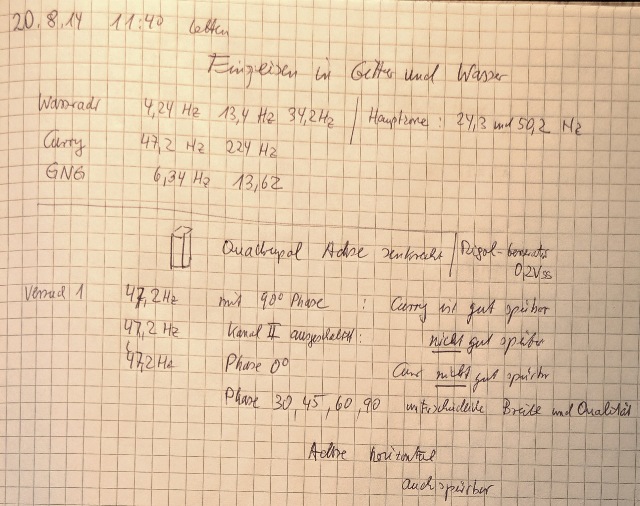 20.8.14 11:40
in Gitter und Wasser
Wasserader 4,24 Hz 13,4 Hz 34,2 Hz | Hauptzone: 24,3 und 50,2 Hz
Curry 47,2 Hz 224 Hz
GNG 6,34 Hz 13,62
Quadrupol Achse senkrecht | Rigol-Generator
0,2Vss
Versuch 1 47,2 Hz mit 90° Phase : Curry ist gut spürbar
47,2 Hz Kanal II ausgeschaltet: nicht gut spürbar
47,2 Hz Phase 0° Curry nicht gut spürbar
Phase 30, 45, 60, 90 unterschiedliche Breite und Qualität
Achse horizontal
auch spürbar